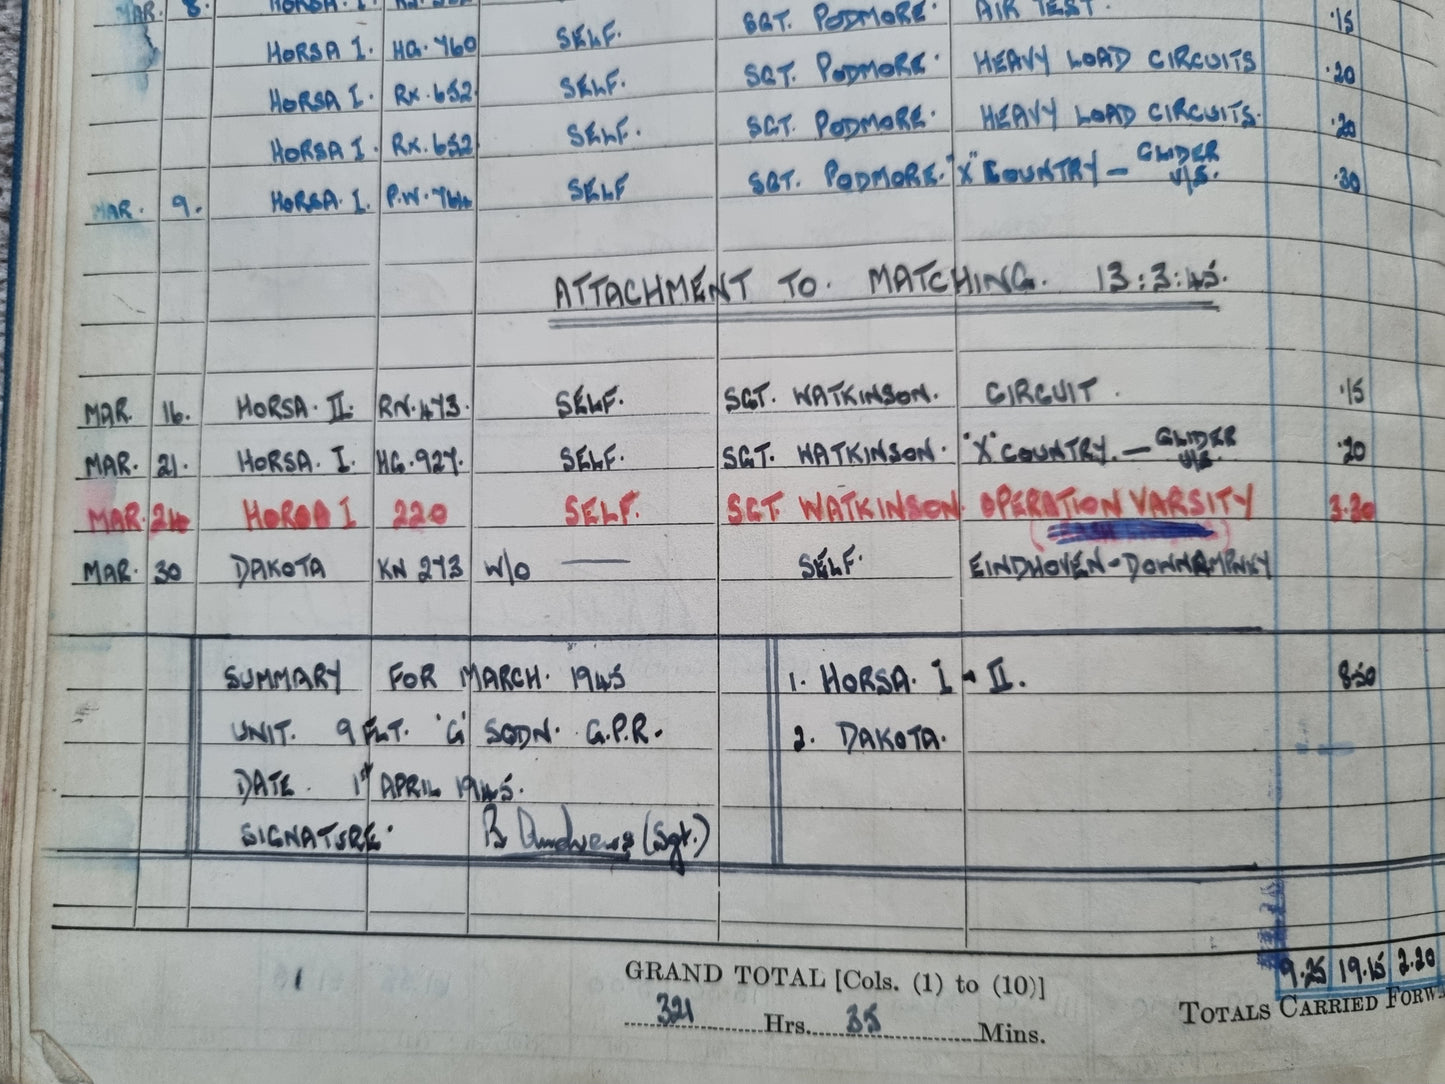 MAR. 8. HORSA. I. AIR TEST.
HORSA I. HG. 760 SELF. SGT. PODMORE. .15
HORSA I. RX. 652 SELF. SGT. PODMORE. HEAVY LOAD CIRCUITS .20
HORSA I. RX. 652 SELF. SGT. PODMORE. HEAVY LOAD CIRCUITS. .20
MAR. 9. HORSA. I. P.W. 764 SELF SGT. PODMORE. "X" COUNTRY - GLIDER U/S. .30
ATTACHMENT TO. MATCHING. 13:3:45.
MAR. 16. HORSA. II. RN. 473. SELF. SGT. WATKINSON. CIRCUIT. .15
MAR. 21. HORSA. I. HG. 927. SELF. SGT. WATKINSON. "X" COUNTRY. - GLIDER U/S. .20
MAR. 24 HORSA I 220 SELF. SGT. WATKINSON. OPERATION VARSITY 3.30
MAR. 30 DAKOTA KN 273 W/O — SELF. EINDHOVEN - DOWNAMPNEY
SUMMARY FOR MARCH. 1945 1. HORSA. I - II. 8.50
UNIT. 9 FLT. 'G' SQDN. G.P.R. 2. DAKOTA.
DATE. 1st APRIL 1945.
SIGNATURE. B Andrews (Sgt.)
9.25 19.15 2.20
GRAND TOTAL [Cols. (1) to (10)] TOTALS CARRIED FORW
321 Hrs. 35 Mins.